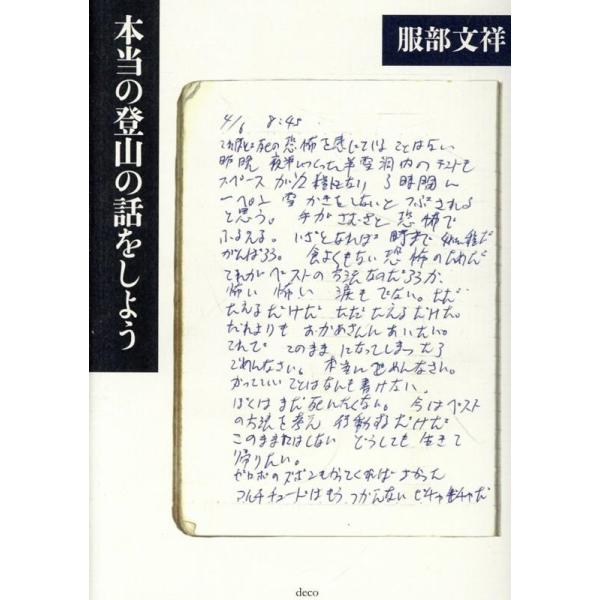 本当の登山の話をしよう
服部文祥
4/6 8:45
これほど死の恐怖を感じていることはない
昨晩 夜半につくった半雪洞内のテントも
スペースが1/2様になり 3時間に
一ぺん 雪かきをしないとつぶされる
と思う。手がさむさと恐怖で
ふるえる。いざとなれば 時まで
がんばろう。食よくもない恐怖のためだ
これがベストの方法なのだろうか、
怖い 怖い 涙もでない。ただ
たえるだけだ ただたえるだけだ。
だれよりもおかあさんにあいたい。
それで このままになってしまったら
ごめんなさい。本当にごめんなさい。
かっこいいことはなんも書けない、
ぼくはまだ死にたくない。今はベスト
の方法を考え 行動するだけだ
このままではしない どうしても生きて
帰りたい。
ゼロポのズボンもかってくればよかった
マルチチュードはもうつかえない ビチャビチャだ
deco